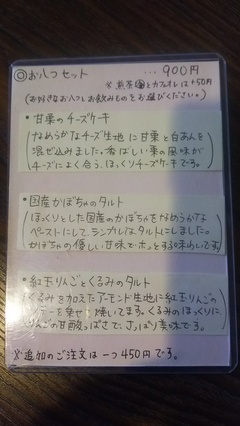 ◎お八つセット ...900円
※煎茶とカフェオレは+50円
(お好きなお八つとお飲みものをお選びください。)
・甘栗のチーズケーキ
なめらかなチーズ生地に甘栗と白あんを
混ぜ込みました。香ばしい栗の風味が
チーズによく合う、ほっくりチーズケーキです。
・国産かぼちゃのタルト
ほっくりとした国産のかぼちゃをなめらかな
ペーストにして、シンプルなタルトにしました。
かぼちゃの優しい甘味でホッとする味わいです
・紅玉りんごとくるみのタルト
くるみを加えたアーモンド生地に紅玉りんごの
を乗せて焼いてます。くるみのほっくりに、
りんごの甘酸っぱさで、さっぱり美味です。
※追加のご注文は一つ450円です。